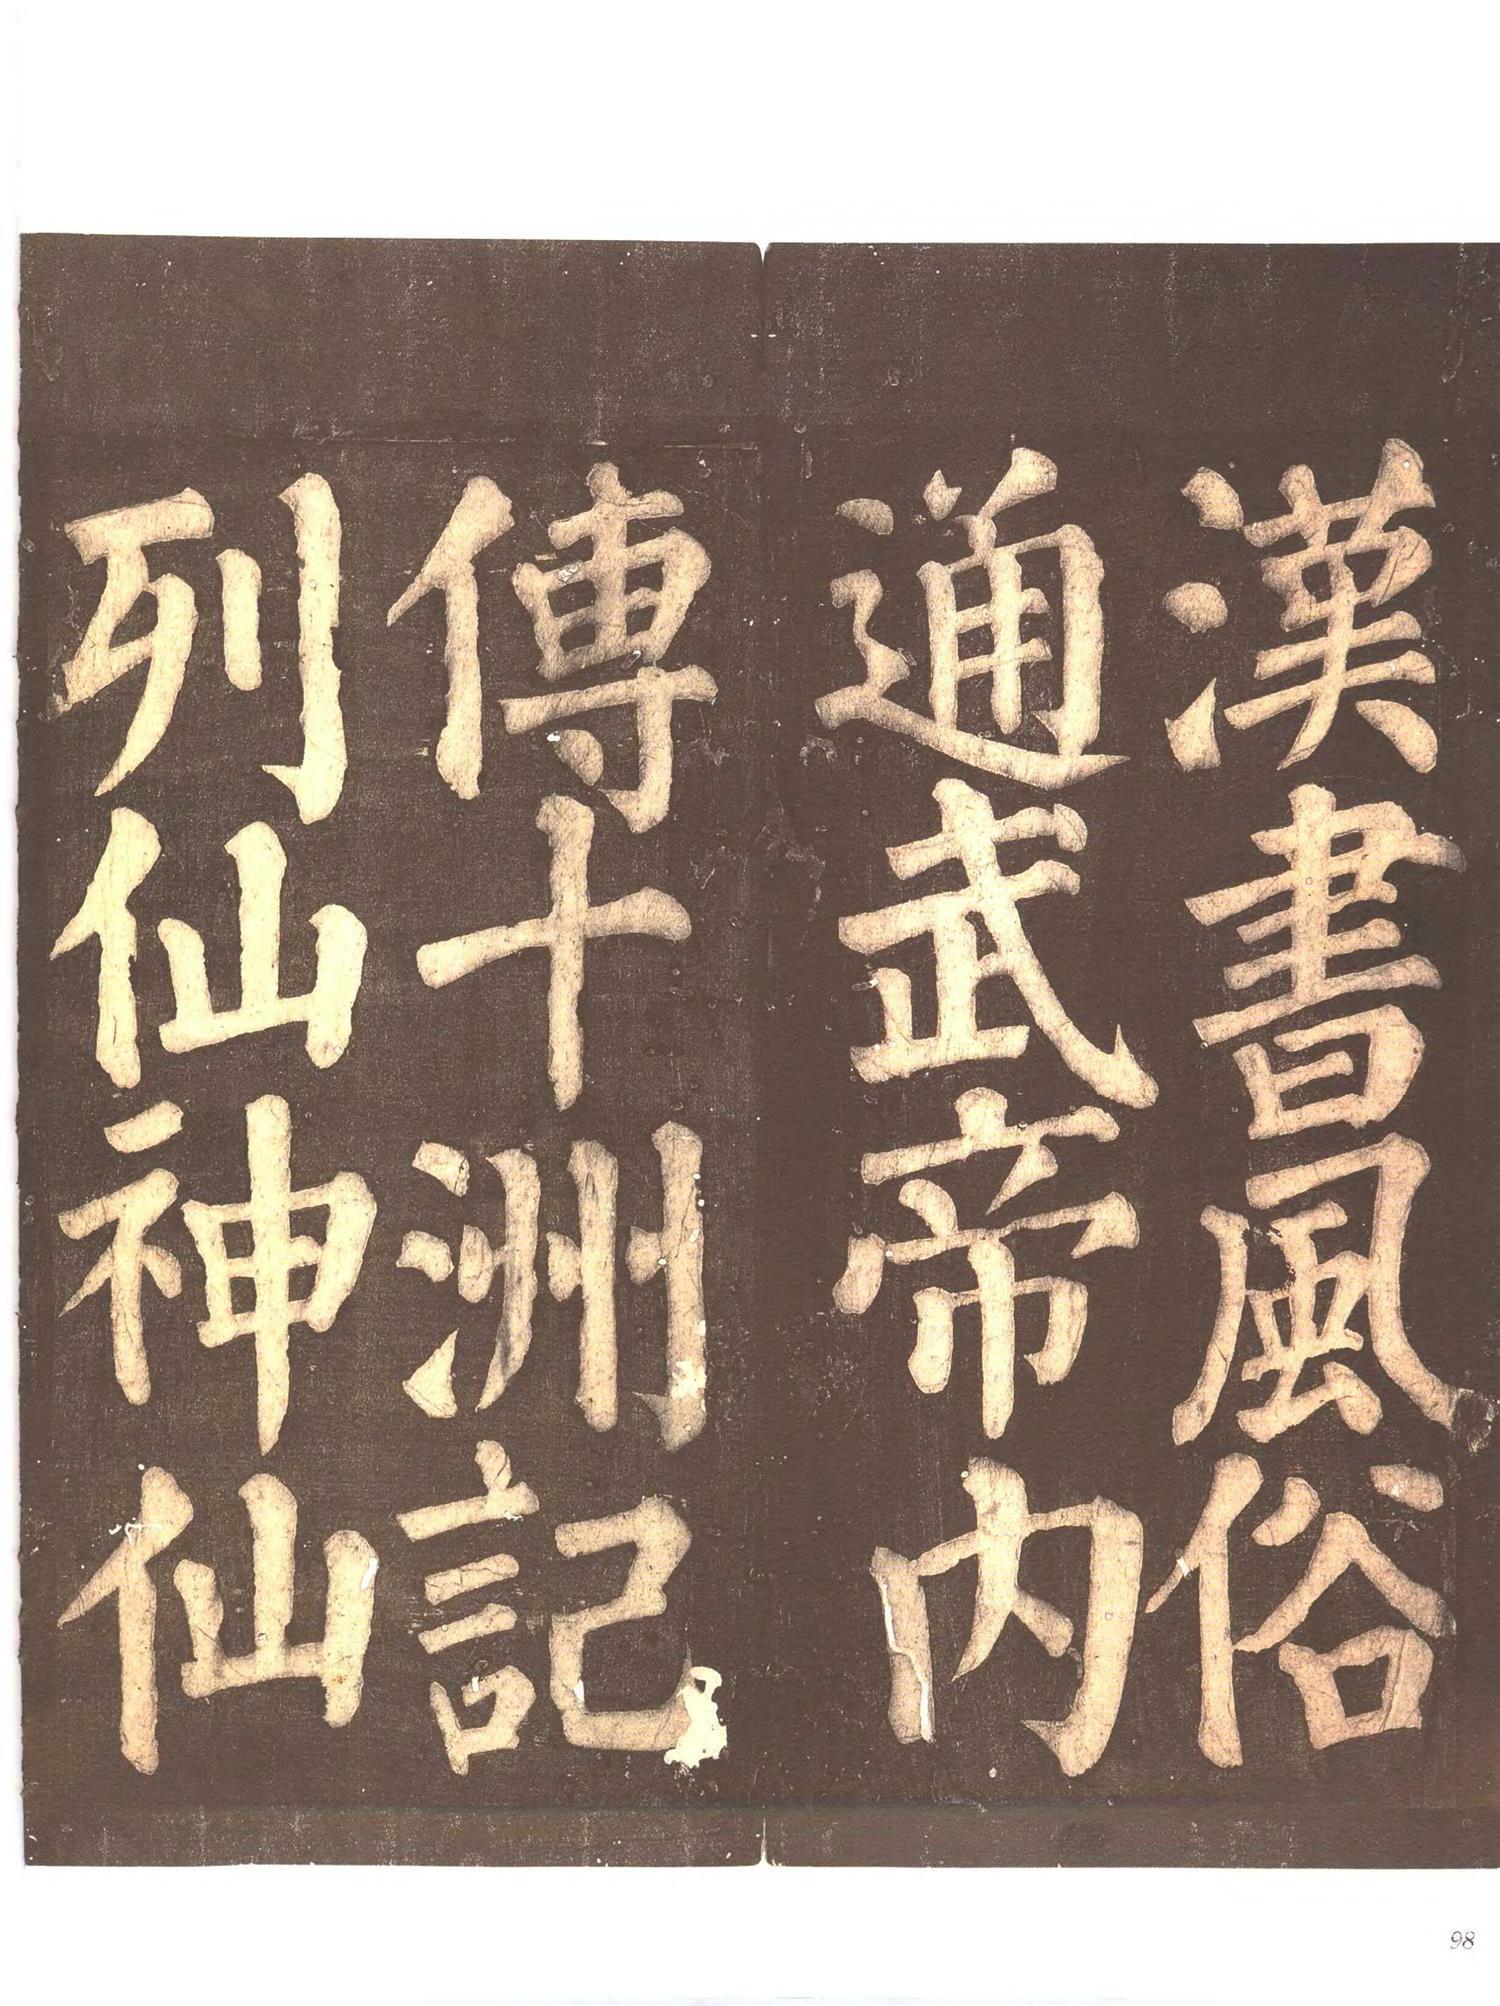 漢書風俗
通武帝内
傳十洲記
列仙神仙
98